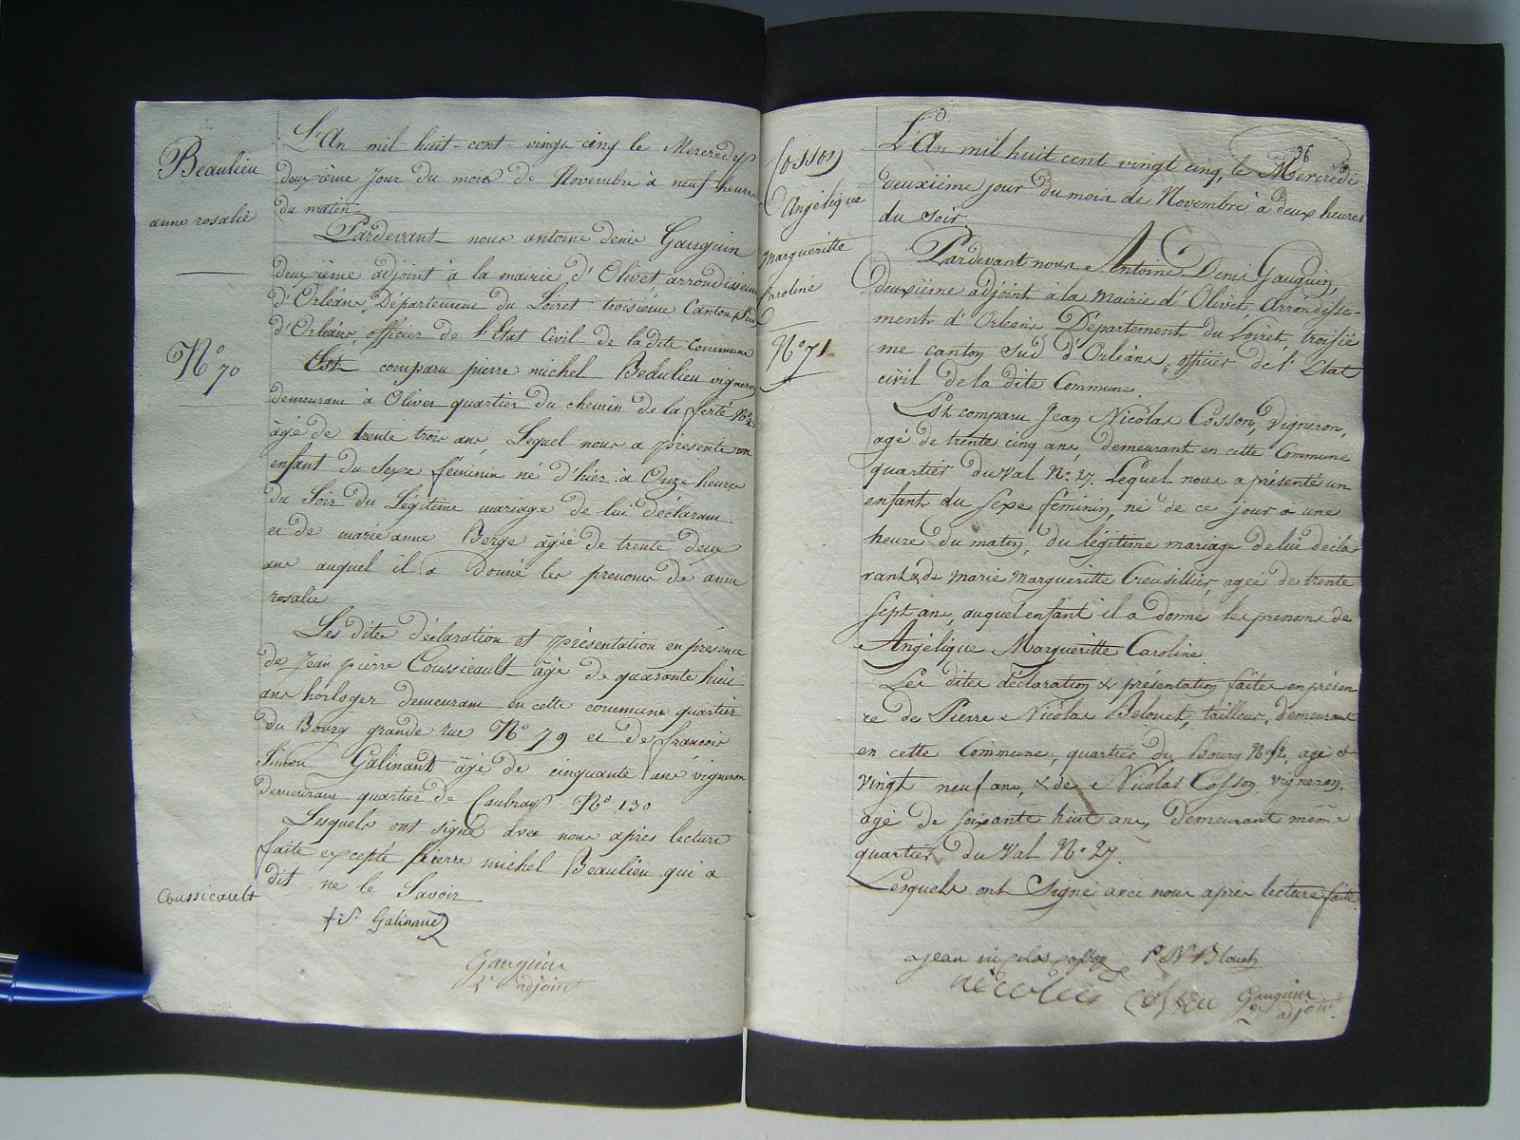 Beaulieu
anne rosalie
N° 70
L'An mil huit-cent vingt cinq le Mercredy
deuxième Jour du mois de Novembre à neuf heures
du matin
Pardevant nous antoine denis Gauguin
deuxième adjoint à la mairie d'Olivet arrondissement
d'Orléans, Département du Loiret troisième Canton Sud
d'Orléans, officier de l'Etat Civil de la dite Commune
Est comparu pierre michel Beaulieu vigneron
demeurant à Olivet quartier du chemin de la ferté
âgé de trente trois ans, Lequel nous a présenté un
enfant du Sexe féminin né d'hier à Onze heures
du Soir du Légitime mariage de lui déclarant
et de marie anne Berge âgée de trente deux
ans auquel il a Donné les prenoms de anne
rosalie
Les dites déclaration et présentation en présence
de Jean pierre Coussicault âgé de quarante huit
ans horloger demeurant en cette commune quartier
du Bourg grande rue N° 79 et de françois
Simon Galinand âgé de cinquante ans vigneron
demeurant quartier de Caubray N° 130
Lesquels ont signé avec nous après lecture
faite excepté pierre michel Beaulieu qui a
dit ne le Savoir
Coussicault
f. S. Galinand
Gauguin
2e adjoint
36
Cosson
Angélique
Margueritte
Caroline
N° 71
L'An mil huit cent vingt cinq, le Mercredi
deuxième jour du mois de Novembre à deux heures
du soir
Pardevant nous Antoine Denis Gauguin,
deuxième adjoint à la Mairie d'Olivet, Arrondisse-
ment d'Orléans Département du Loiret, troisiè
me canton Sud d'Orléans, officier de l'Etat
civil de la dite Commune.
Est comparu Jean Nicolas Cosson, Vigneron,
agé de trente cinq ans, demeurant en cette Commune
quartier du Val N° 27. Lequel nous a présenté un
enfant du Sexe féminin, né de ce jour a une
heure du matin, du légitime mariage de lui décla
rant & de Marie Margueritte Creusillier, agée de trente
Sept ans, auquel enfant il a donné les prenoms de
Angélique Margueritte Caroline.
Les dites déclaration & présentation faites en présen
ce de Pierre Nicolas Belouet, tailleur, demeurant
en cette Commune, quartier du Bourg agé de
vingt neuf ans, & de Nicolas Cosson, vigneron,
agé de soixante huit ans, demeurant même
quartier du Val N° 27.
Lesquels ont Signé avec nous après lecture faite.
jean nicolas cosson P N Blouet
nicolas cosson Gauguin
2e adjoint